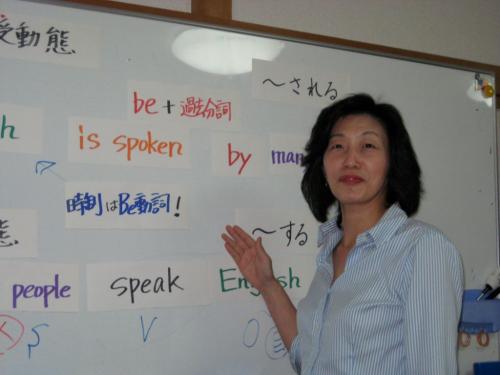 受動態
〜される
be + 過去分詞
h is spoken by man
時制はBe動詞!
態
〜する
people speak English
S V O